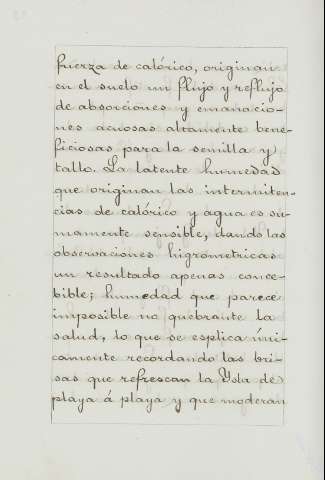 fuerza de calórico, originan
en el suelo un flujo y reflujo
de absorciones y emanacio-
nes acuosas altamente bene-
ficiosas para la semilla y
tallo. La latente humedad
que originan las intermiten-
cias de calórico y agua es su-
mamente sensible, dando las
observaciones higrometricas
un resultado apenas conce-
bible; humedad que parece
imposible no quebrante la
salud, lo que se esplica úni-
camente recordando las bri-
sas que refrescan la Ysla de
playa á playa y que moderan